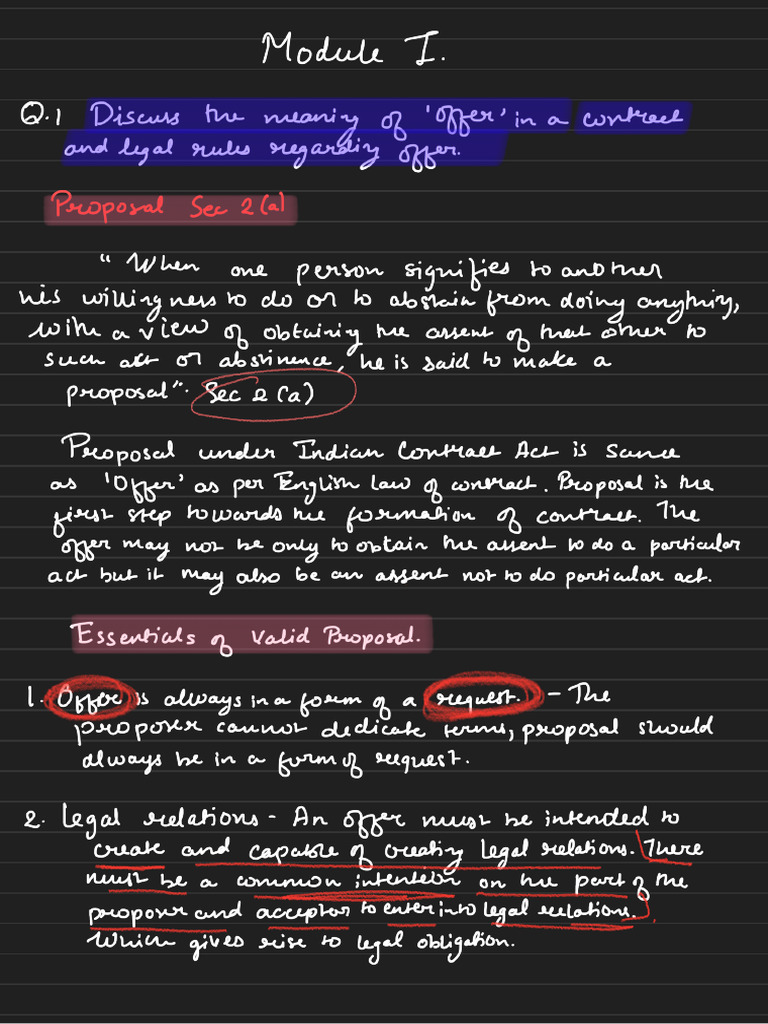 Module I.
Q.1 Discuss the meaning of 'offer' in a contract
and legal rules regarding offer.
Proposal Sec 2(a)
"When one person signifies to another
his willingness to do or to abstain from doing anything,
with a view of obtaining the assent of that other to
such act or abstinence, he is said to make a
proposal". Sec 2(a)
Proposal under Indian Contract Act is same
as 'Offer' as per English Law of contract. Proposal is the
first step towards the formation of contract. The
offer may not be only to obtain the assent to do a particular
act but it may also be an assent not to do particular act.
Essentials of Valid Proposal.
1. Offer is always in a form of a request. - The
proposer cannot dedicate terms, proposal should
always be in a form of request.
2. Legal relations - An offer must be intended to
create and capable of creating legal relations. There
must be a common intention on the part of the
proposer and acceptor to enter into legal relations.
Which gives rise to legal obligation.